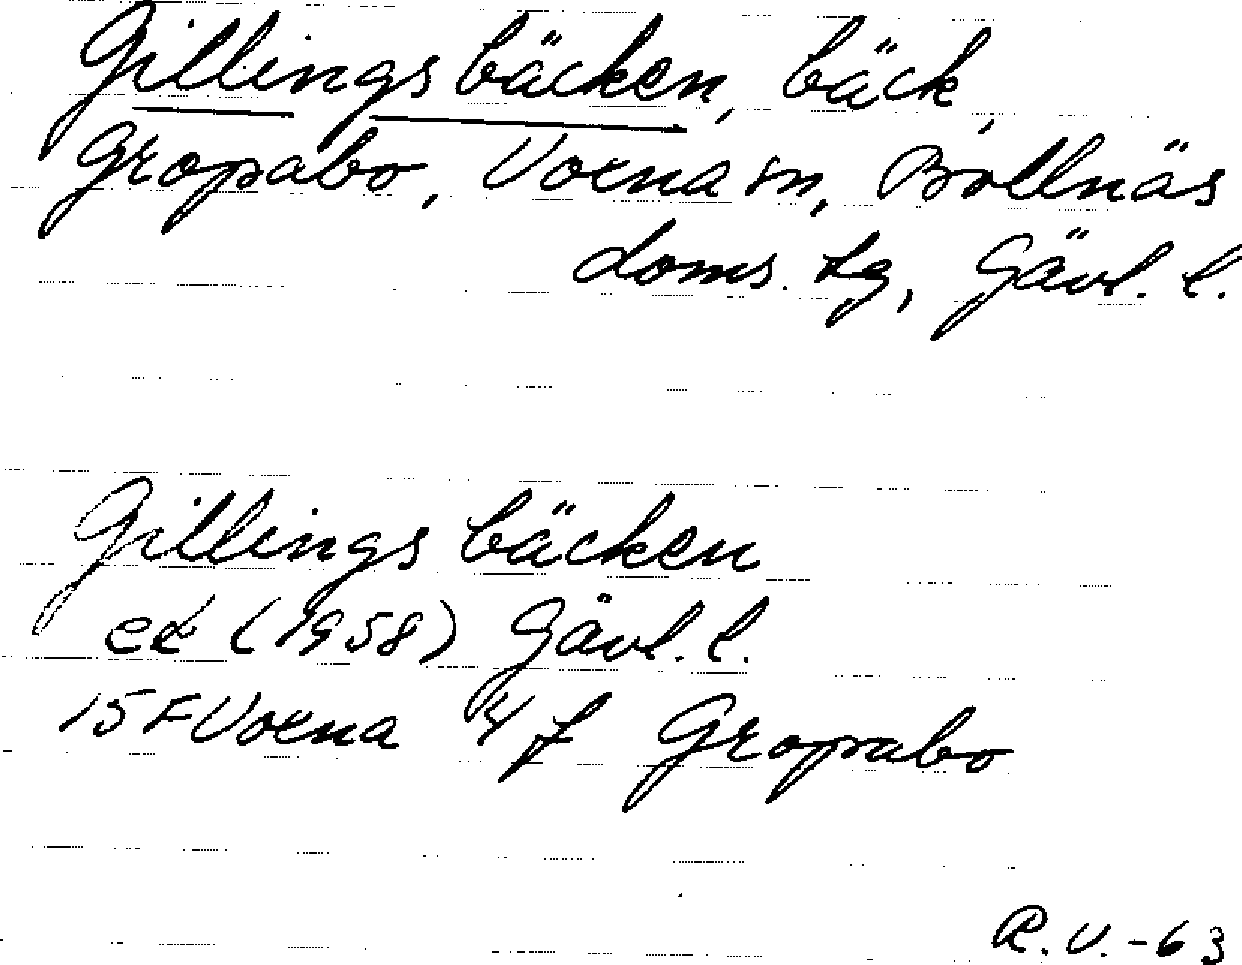 Gillingsbäcken, bäck,
Gropabo, Voxna sn, Bollnäs
doms. tg, Gävl. l.
Gillingsbäcken
ek (1958) Gävl. l.
15F Voxna 4f Gropabo
R.V.-63